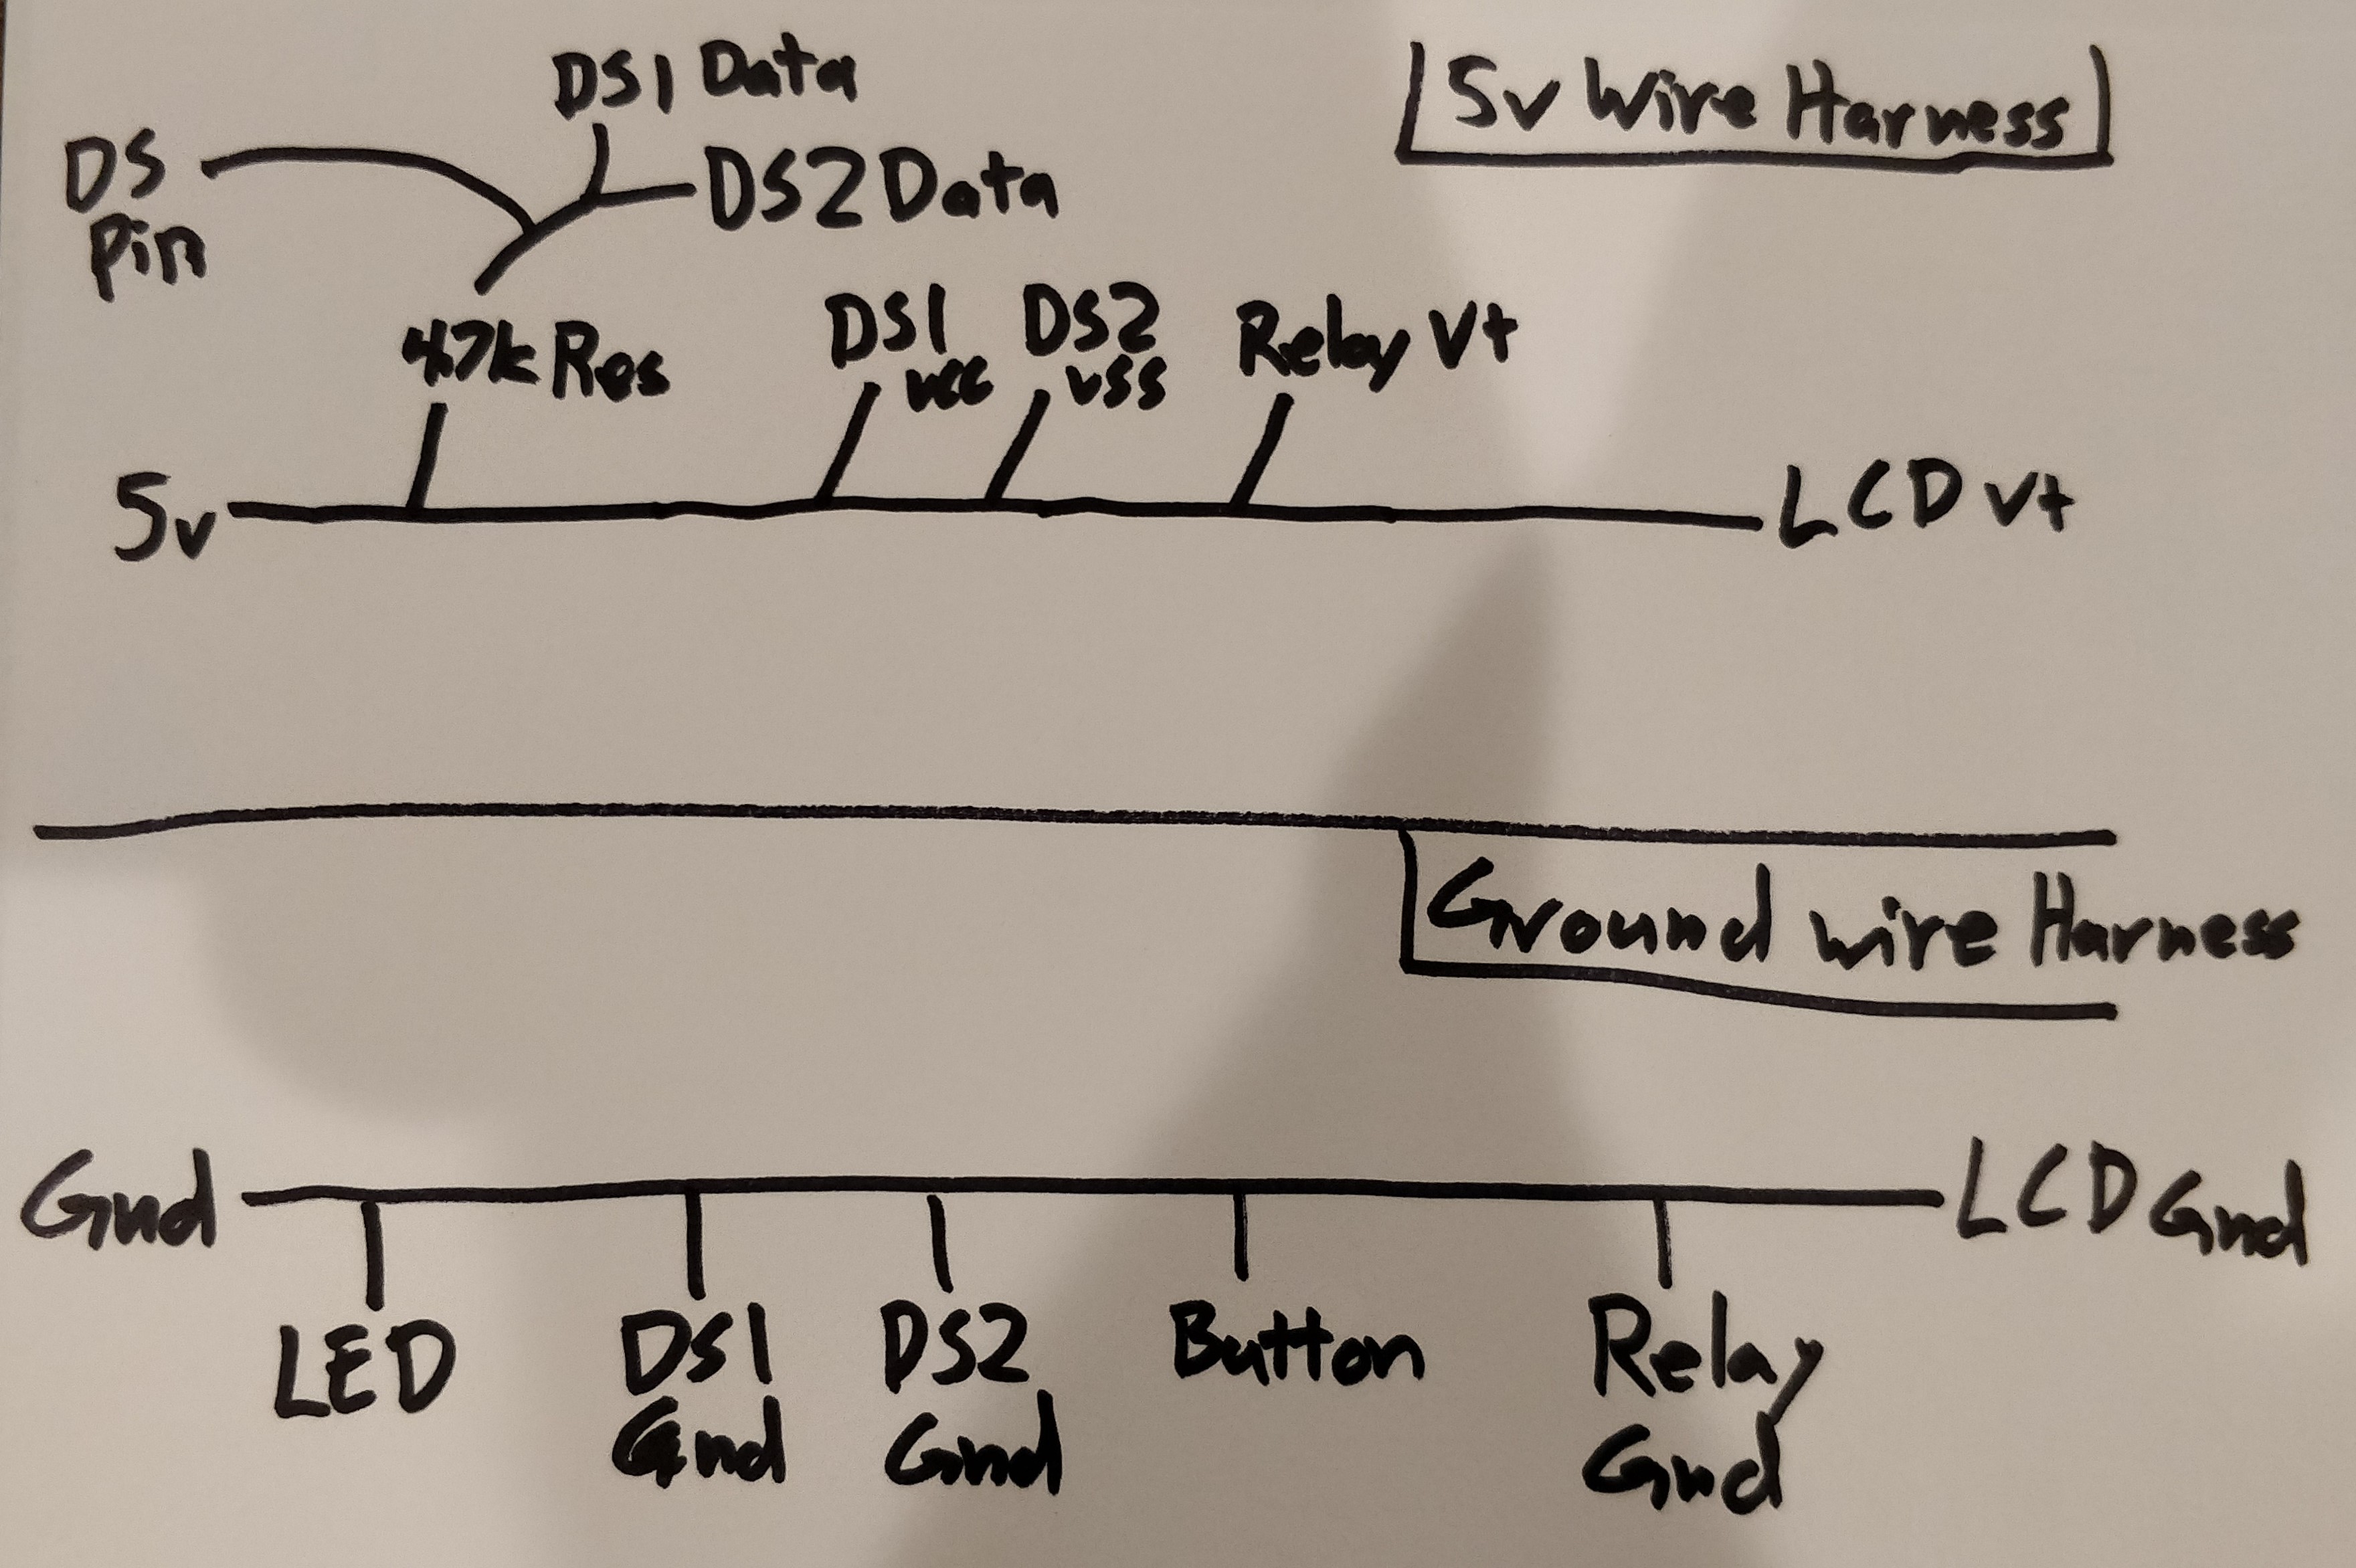 5v Wire Harness
DS1 Data
DS
Pin
DS2 Data
4.7k Res
DS1
vcc
DS2
vss
Relay V+
5v
LCD V+
Ground wire Harness
Gnd
LCD Gnd
LED
DS1
Gnd
DS2
Gnd
Button
Relay
Gnd